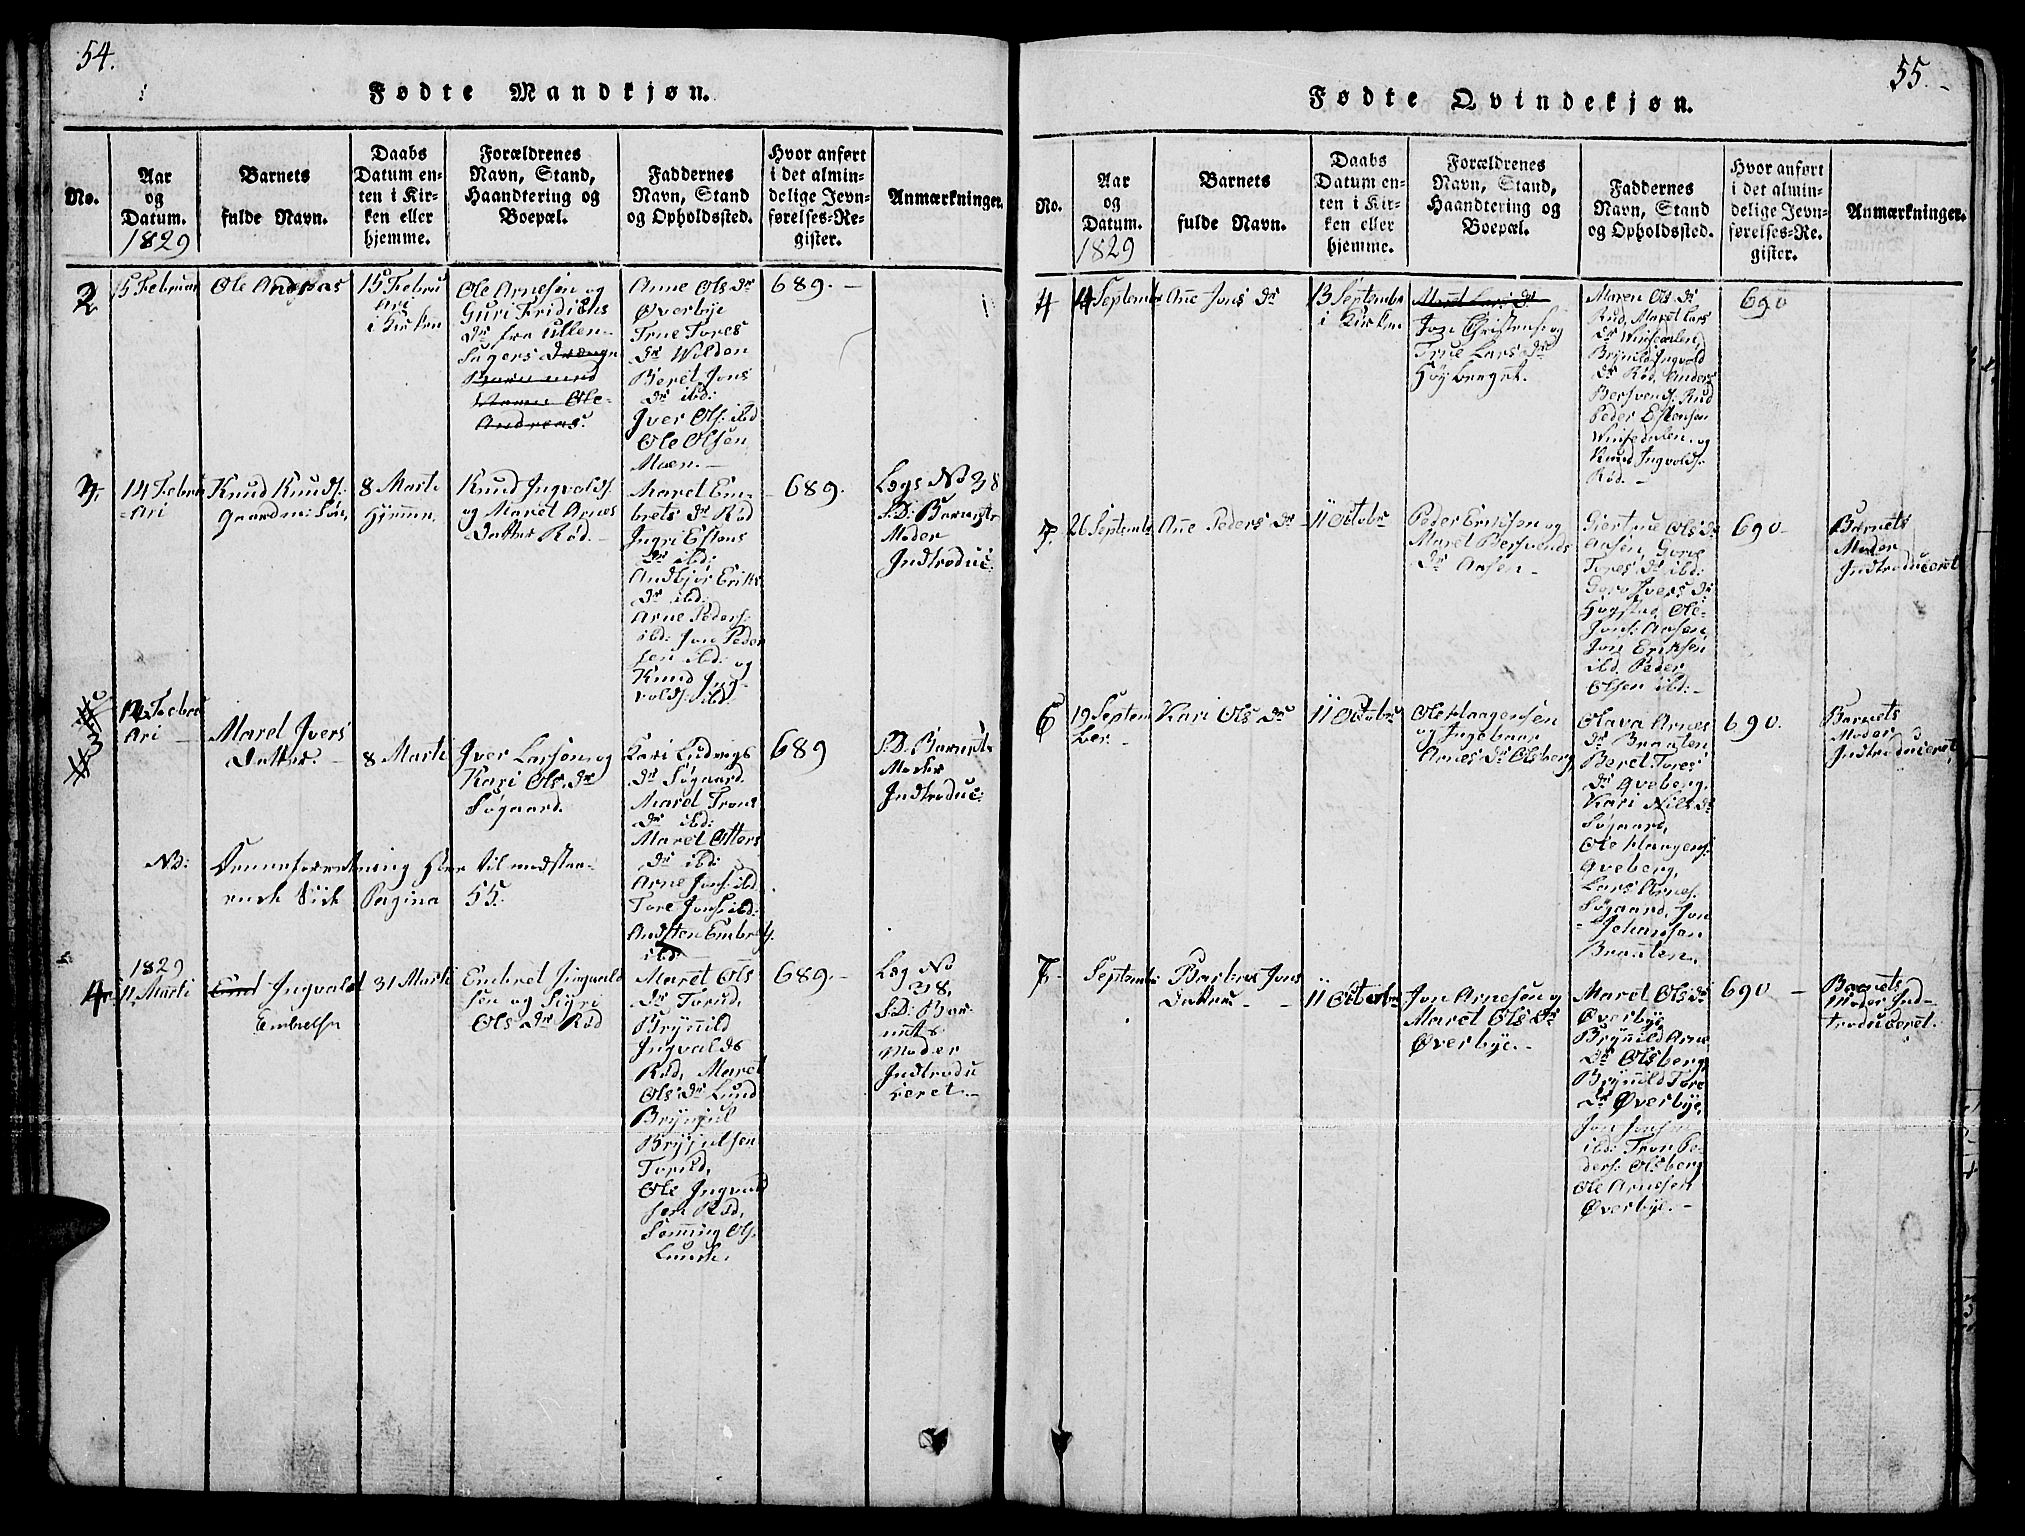 54.
Fødte Mandkjøn.
No.
Aar
og
Datum.
1829
Barnets
fulde Navn.
Daabs
Datum en-
ten i Kir-
ken eller
hjemme.
Forældrenes
Navn, Stand,
Haandtering og
Boepæl.
Faddernes
Navn, Stand
og Opholdssted.
Hvor anført
i det almin-
delige Jevn-
førelses-Re-
gister.
Anmærkninger.
2
5 Februar
Ole Andreas
15 Febru
ari
i Kirken
Ole Arnesen og
Guri Fridichs
Dr fra Ullen-
Ole-
Andreas.
Anne Ols Dr
Øverbye
True Tores
Dr Wilden
Beret Jons
Dr ibd:
Iver Ols: ibd
Ole Olsen
Moen.-
689.-
3.
14 Febru
-ari
Knud Knuds:
Gaardm: Søn.
8 Marti
Hjemme.
Knud Ingvolds.
og Maret Arnes
Datter Rød.-
Maret Em-
brets Dr Rød
Ingri Estens
Dr ibd:
Andbjør Eriks
Dr ibd:
Arne Peders:
ibd: Jon Peder
sen ibd: og
Knud Ing-
volds: ibd.
689.
Lægs No 38
S:D: Barnets
Moder
Indtroduc:
14 Febru
Ari
Maret Ivers
Datter.-
8 Marti
Iver Larsen og
Kari Ols. Dr
Søgaard.
Kari Ludvigs
Dr Søgaard.
Maret Trons
Dr ibd:
Maret Otters
Dr ibd:
Arne Jons: ibd.
Tore Jons: ibd:
Andsten Embret
ibd
689
S:D. Barnets
Moder
Indtroduc:
Nb:
Denne forretning Hører til modstaa-
ende Side Pagina 55.
4.
1829
11 Marti
Ingvald
Embretsen
31 Marti
Embret Jingvald
sen og Sigri
Ols Dr Rød
Maret Ols
Dr Torud,
Brynild
Ingvalds
Rød, Maret
Ols: Dr Lund
Brynjul
Brynjulsen
Torud,
Ole Ingvald
sen Rød,
Sæming Ols.
689.-
Læg No
38,
S:D: Bar-
nets
Moder
Indtrodu
ceret.-
55.-
Fødte Qvindekjøn.
No.
Aar
og
Datum.
1829
Barnets
fulde Navn.
Daabs
Datum en-
ten i Kir-
ken eller
hjemme.
Forældrenes
Navn, Stand,
Haandtering og
Boepæl.
Faddernes
Navn, Stand
og Opholdssted.
Hvor anført
i det almin-
delige Jevn-
førelses-Re-
gister.
Anmærkninger.
4
4 Septembr
Ane Jons Dr
13 Septembr
i Kirken
Maret Lars Dr
Jon Christens: og
True Lars Dr
Høyberget.
Maren Ols Dr
Rud, Maret Lars
Dr
Brynild Ingvold
Dr Rød, Anders
Bersvends: Rud
Peder Estensen
og
Knud Ingvolds:
Rød.-
690
5.
26 Septembr
Ane Peders Dr
11 Octobr
Peder Eriksen og
Maret Bersvends
Dr Aasen-
Giertrue Ols Dr
Aasen, Goroe
Tores Dr ibd:
Goro Ivers Dr
Høgstad, Ole
Jons: Aasen,
Jon Eriksen
ibd. Peder
Olsen ibd:-
690-
Barnets
Moder
Indtroduceret
6
19 Septem
ber.-
Kari Ols Dr
11 Octobr
Ole Haagensen
og Ingebaar
Arnes Dr Olsberg,
Olava Arnes
Dr Braaten,
Beret Tores
Dr Qveberg,
Kari Nils Dr
Søgaard,
Ole Haagens:
Qveberg,
Lars Arnes.
Søgaard, Jon
Johansen
Braaten.
690.
Barnets
Moder
Indtroduceret,
7.
Septembr
Barbroe Jons
Datter -
11 Octobr
Jon Arnesen og
Maret Ols Dr
Øverbye.-
Maret Ols Dr
Øverbye,
Brynild Arne
Dr Olsberg,
Brynild Tore
Dr Øverbye,
Jon Jensen
ibd: Tron Pe-
ders: Olsberg
Ole Arnesen
Øverbye.-
690 -
Barnets
Moder Ind-
troduceret.